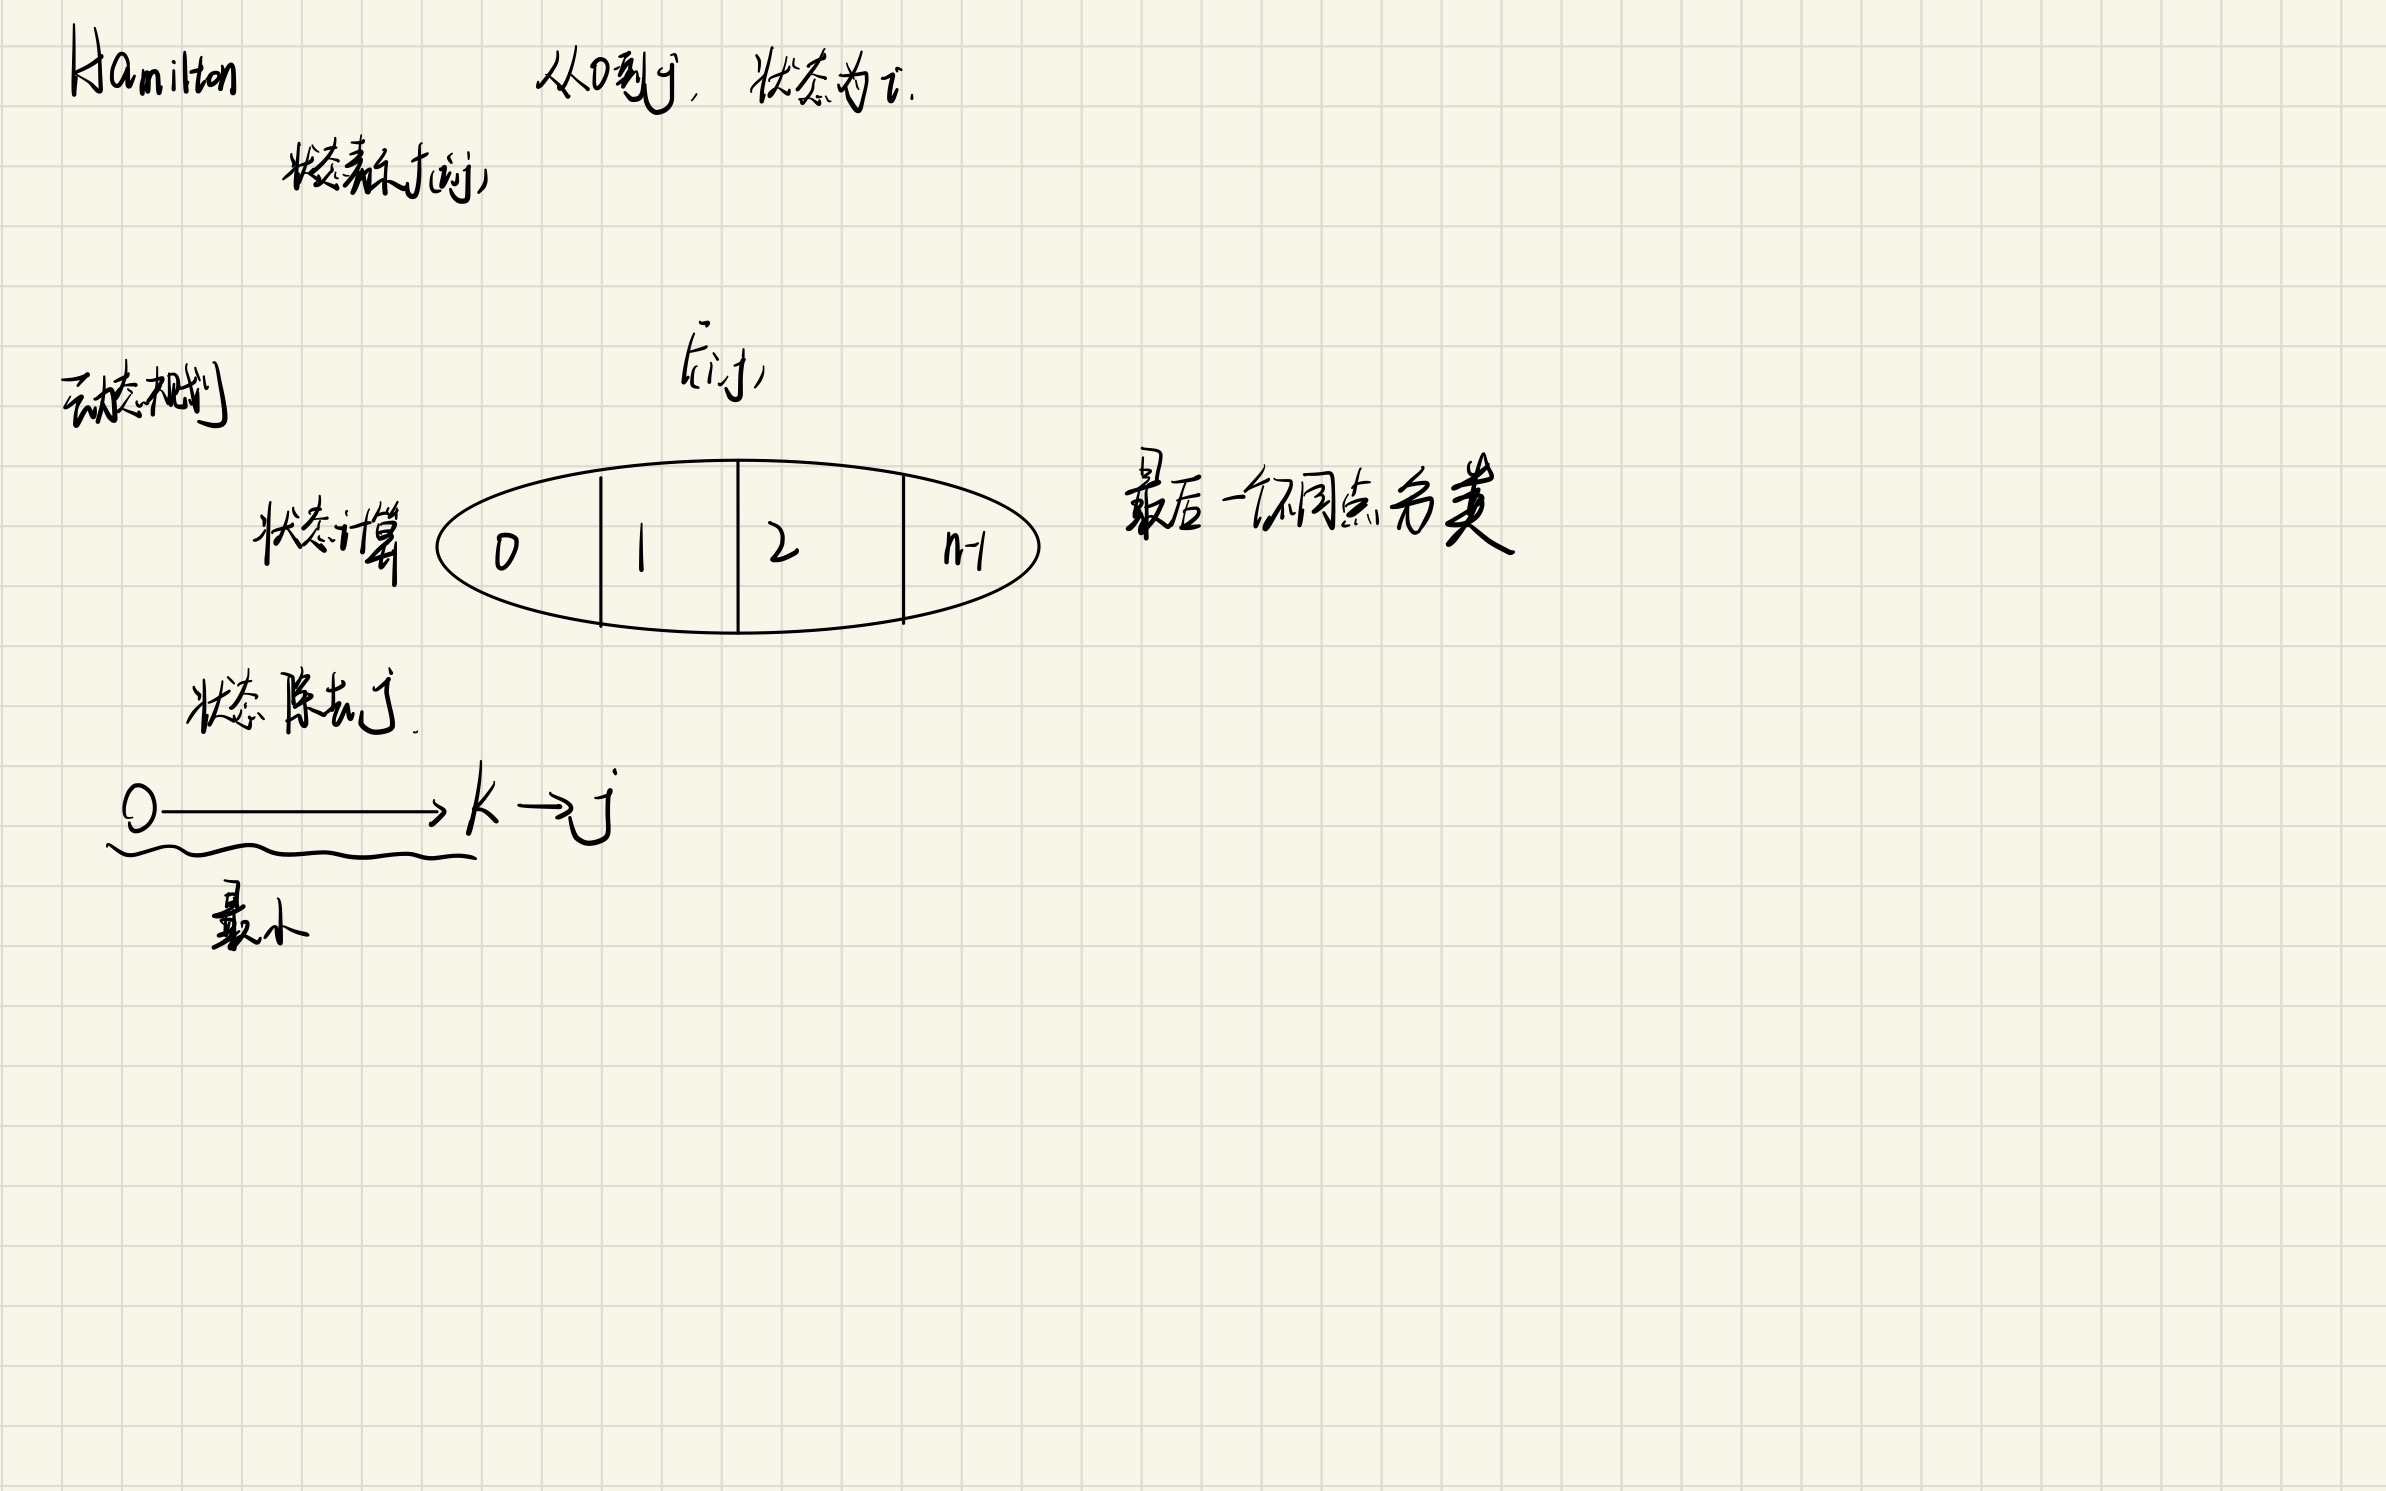 Hamilton
从0到j, 状态为i.
状态表示f(i,j)
F(i,j)
动态规划
状态计算 0 1 2 n-1
最后一个不同点分类
状态除去j.
0 → k → j
最小